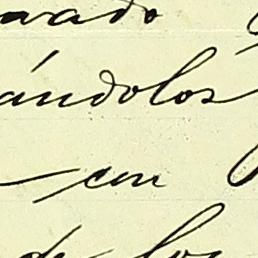 vado
ándolos
con
de los